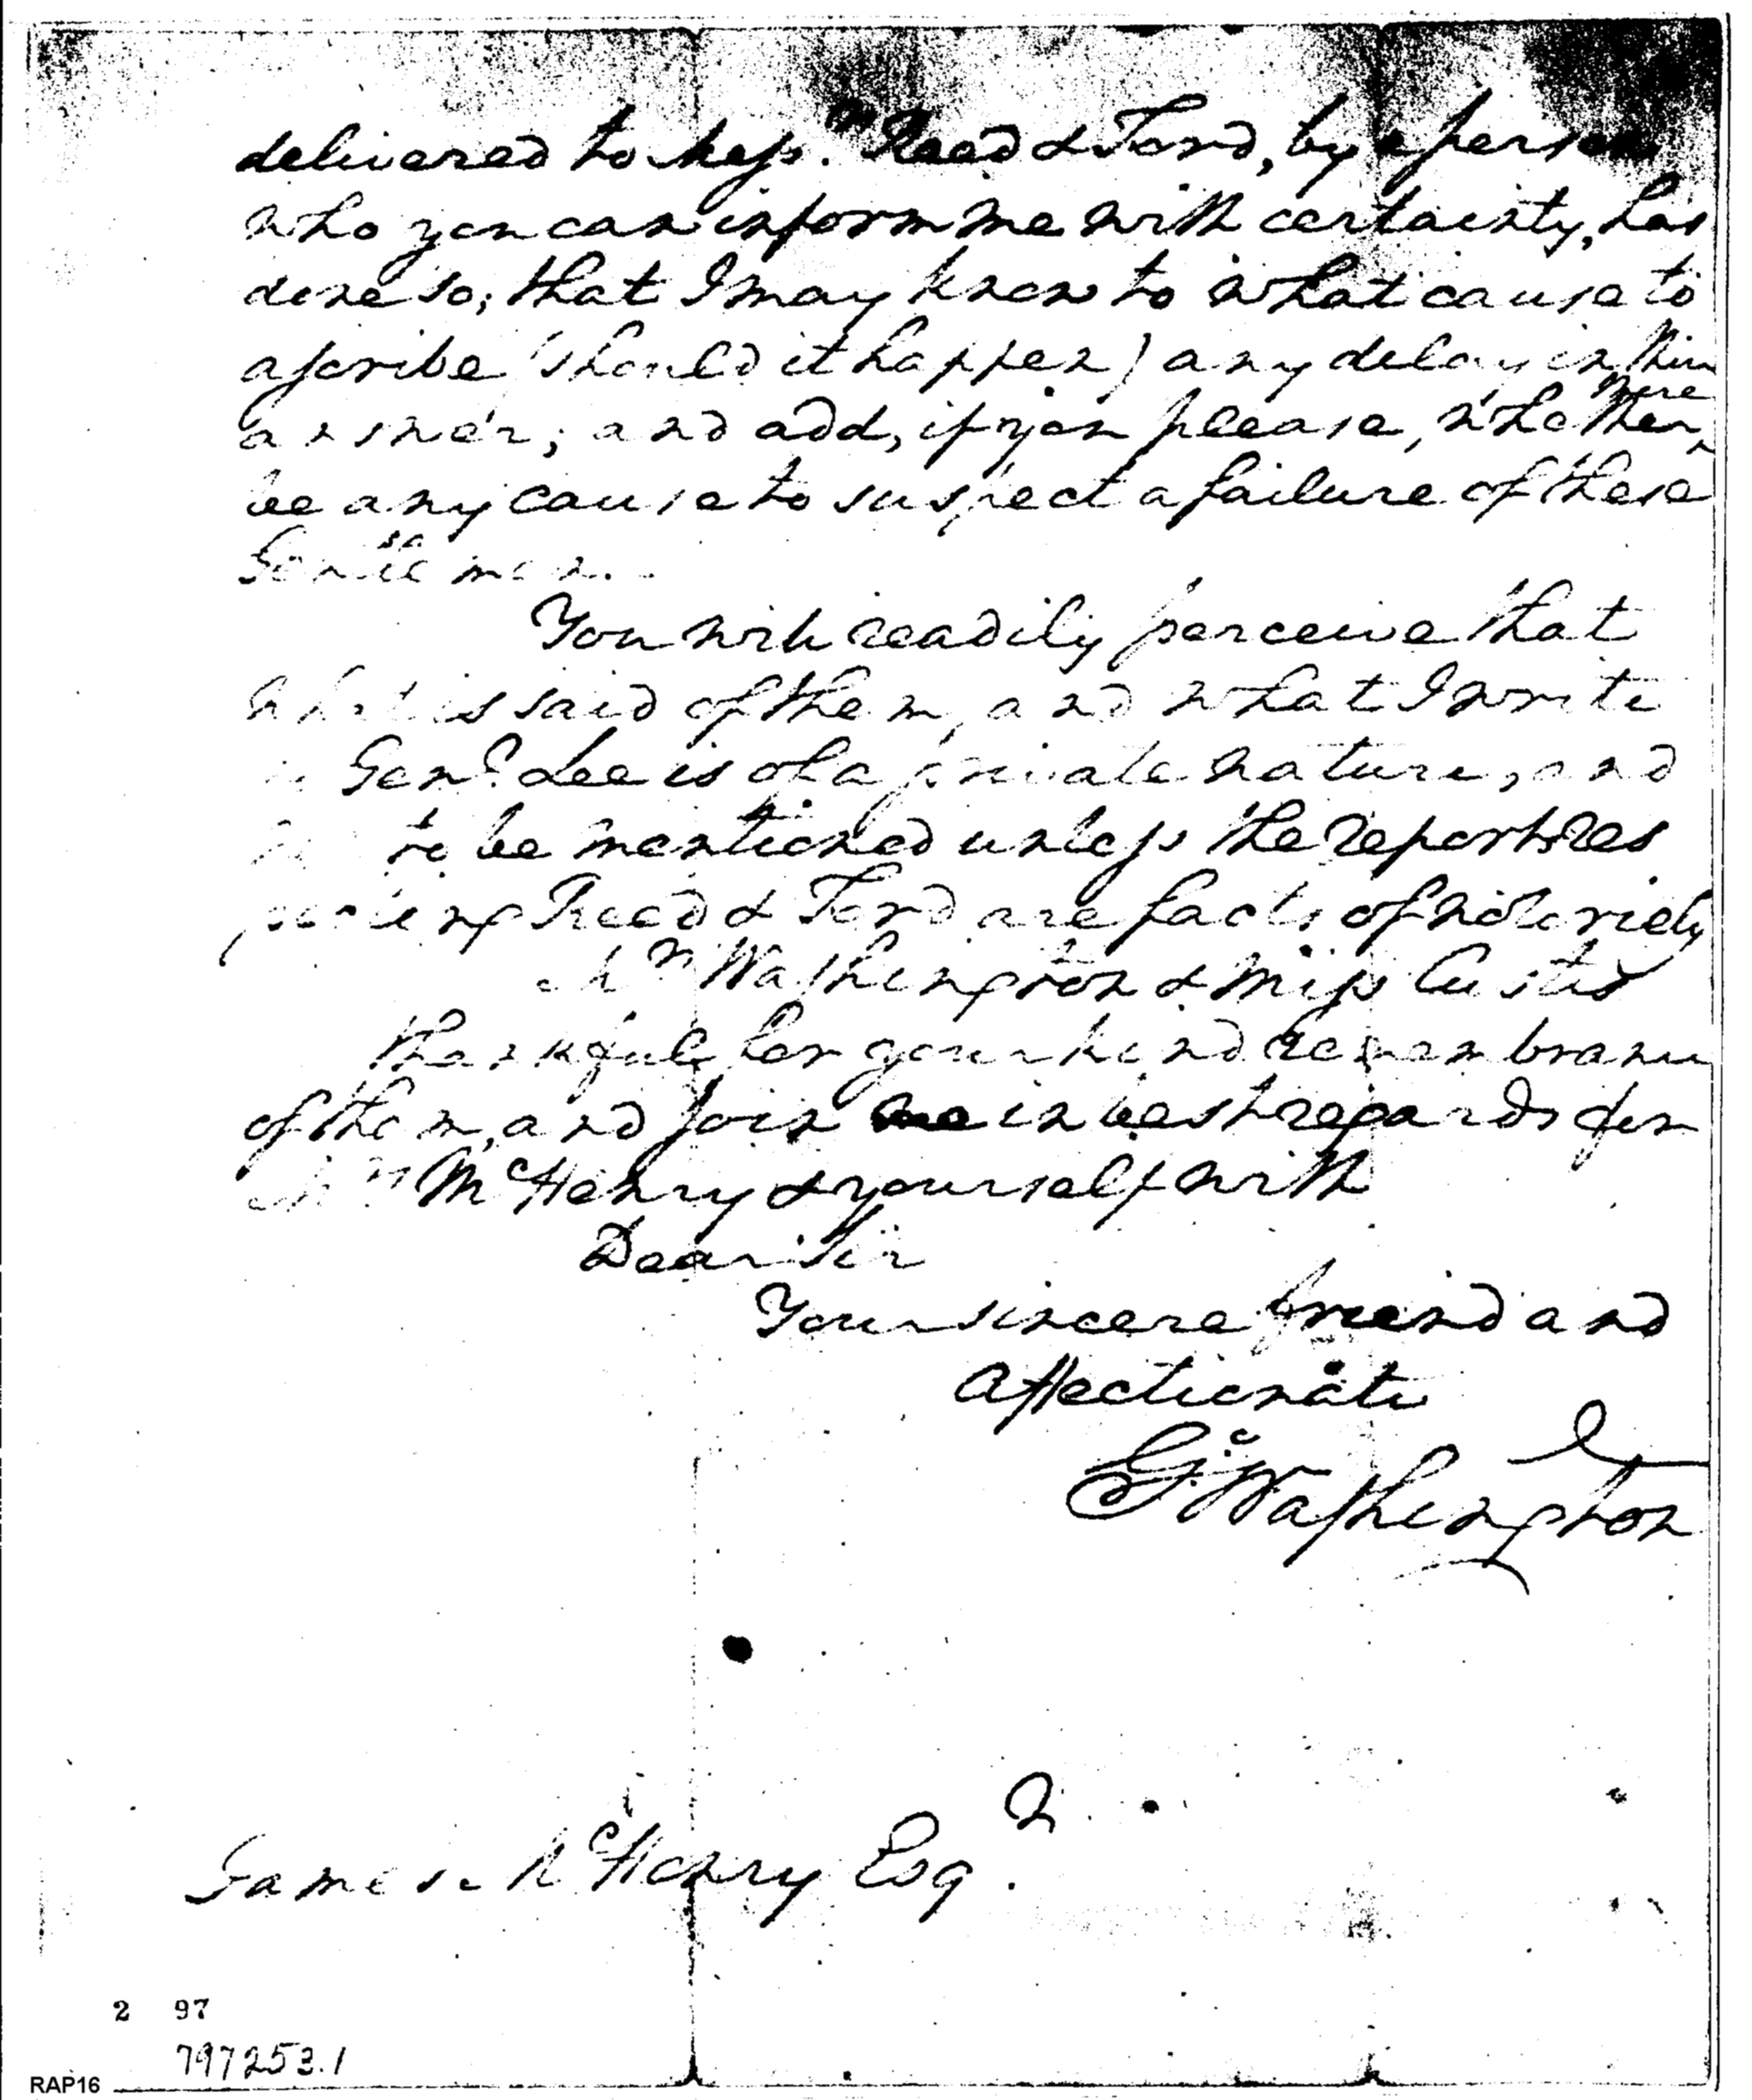 delivered to Messrs. Reed & Ford, by a person
who you can inform me with certainty, has
done so; that I may know to what cause to
ascribe (should it happen) any delay in their
answer; and add, if you please, whether there
be any cause to suspect a failure of these
Gentlemen.
You will readily perceive that
what is said of them, and what I write
Genl. Lee is of a private nature, and
to be mentioned unless the reports res
pecting Reed & Ford are facts of notoriety
Mrs Washington & Miss Custis
thankful for your kind remembrance
of them, and join me in best regards for
Mrs McHenry & yourself with
Dear Sir
Your sincere friend and
Affectionate
Go: Washington
James McHenry Esqr.
2 97
797253.1
RAP16